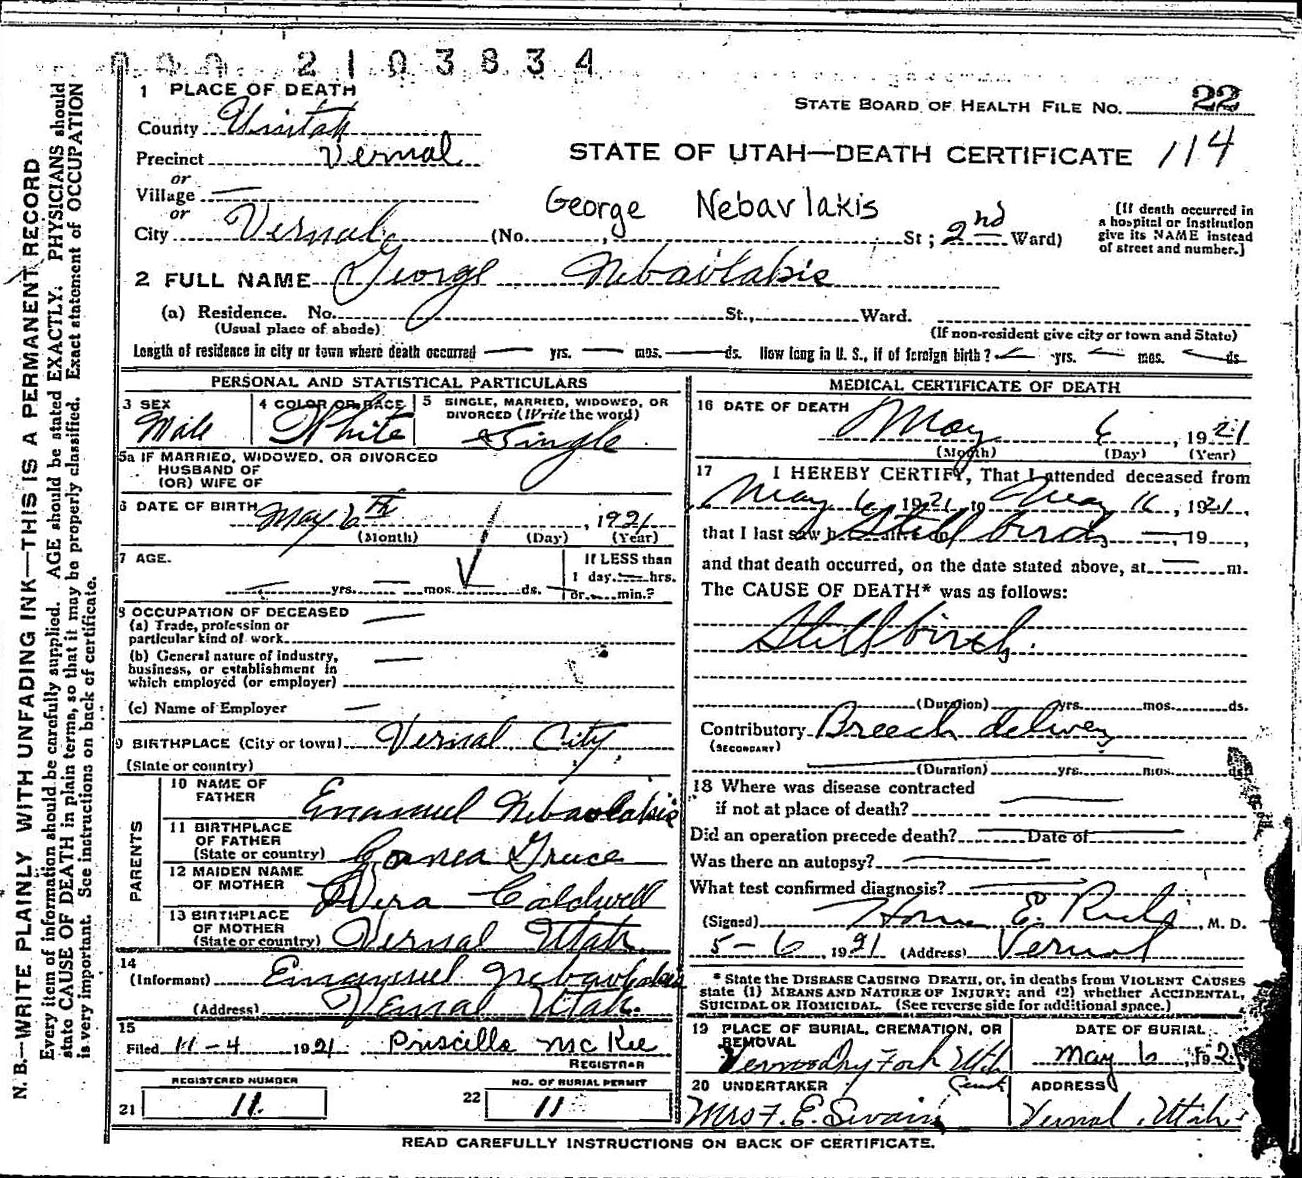 2103834
1 PLACE OF DEATH
STATE BOARD OF HEALTH FILE NO. 22
County Uintah
Precinct Vernal
STATE OF UTAH—DEATH CERTIFICATE 114
or
Village —
or
George Nebavlakis
City Vernal (No. , St ; 2nd Ward)
(If death occurred in a hospital or institution give its NAME instead of street and number.]
2 FULL NAME George Nebavlakis
(a) Residence. No. St., Ward.
(Usual place of abode)
(If non-resident give city or town and State)
Length of residence in city or town where death occurred — yrs. — mos. — ds. How long in U. S., if of foreign birth? — yrs. — mos. — ds
PERSONAL AND STATISTICAL PARTICULARS
3 SEX Male
4 COLOR OR RACE White
5 SINGLE, MARRIED, WIDOWED, OR DIVORCED (Write the word) Single
5a IF MARRIED, WIDOWED, OR DIVORCED
HUSBAND OF
(OR) WIFE OF
6 DATE OF BIRTH May 6th , 1921
(Month) (Day) (Year)
7 AGE.
If LESS than
1 day. — hrs.
— yrs. — mos. — ds. or — min.?
8 OCCUPATION OF DECEASED
(a) Trade, profession or
particular kind of work —
(b) General nature of industry,
business, or establishment in
which employed (or employer) —
(c) Name of Employer —
9 BIRTHPLACE (City or town) Vernal City
(State or country)
PARENTS
10 NAME OF FATHER Emanuel Nebavlakis
11 BIRTHPLACE OF FATHER (State or country)
12 MAIDEN NAME OF MOTHER Vera Caldwell
13 BIRTHPLACE OF MOTHER (State or country) Vernal Utah
14
(Informant) Emanuel Nebavlakis
(Address) Vernal Utah.
15
Filed 11-4 1921 Priscilla McKee
REGISTRAR
REGISTERED NUMBER
21 11.
NO. OF BURIAL PERMIT
22 11
MEDICAL CERTIFICATE OF DEATH
16 DATE OF DEATH
May 6 , 1921
(Month) (Day) (Year)
17 I HEREBY CERTIFY, That I attended deceased from
May 6 1921 to May 16 , 1921,
that I last saw h Still birth — , 19 ,
and that death occurred, on the date stated above, at — m.
The CAUSE OF DEATH* was as follows:
Stillbirth.
(Duration) yrs. mos. ds.
Contributory Breech delivery
(SECONDARY)
(Duration) yrs. mos. ds
18 Where was disease contracted
if not at place of death? —
Did an operation precede death? — Date of —
Was there an autopsy? —
What test confirmed diagnosis? —
(Signed) E. , M. D.
5-6 , 1921 (Address) Vernal
* State the DISEASE CAUSING DEATH, or, in deaths from VIOLENT CAUSES
state (1) MEANS AND NATURE OF INJURY; and (2) whether ACCIDENTAL,
SUICIDAL OR HOMICIDAL (See reverse side for additional space.)
19 PLACE OF BURIAL, CREMATION, OR REMOVAL
Dry Fork Utah
DATE OF BURIAL
May 6
20 UNDERTAKER
Mrs F. E. Swain
ADDRESS
Vernal, Utah
READ CAREFULLY INSTRUCTIONS ON BACK OF CERTIFICATE.
N. B.—WRITE PLAINLY WITH UNFADING INK—THIS IS A PERMANENT RECORD
Every item of information should be carefully supplied. AGE should be stated EXACTLY. PHYSICIANS should
state CAUSE OF DEATH in plain terms, so that it may be properly classified. Exact statement of OCCUPATION
is very important. See instructions on back of certificate.